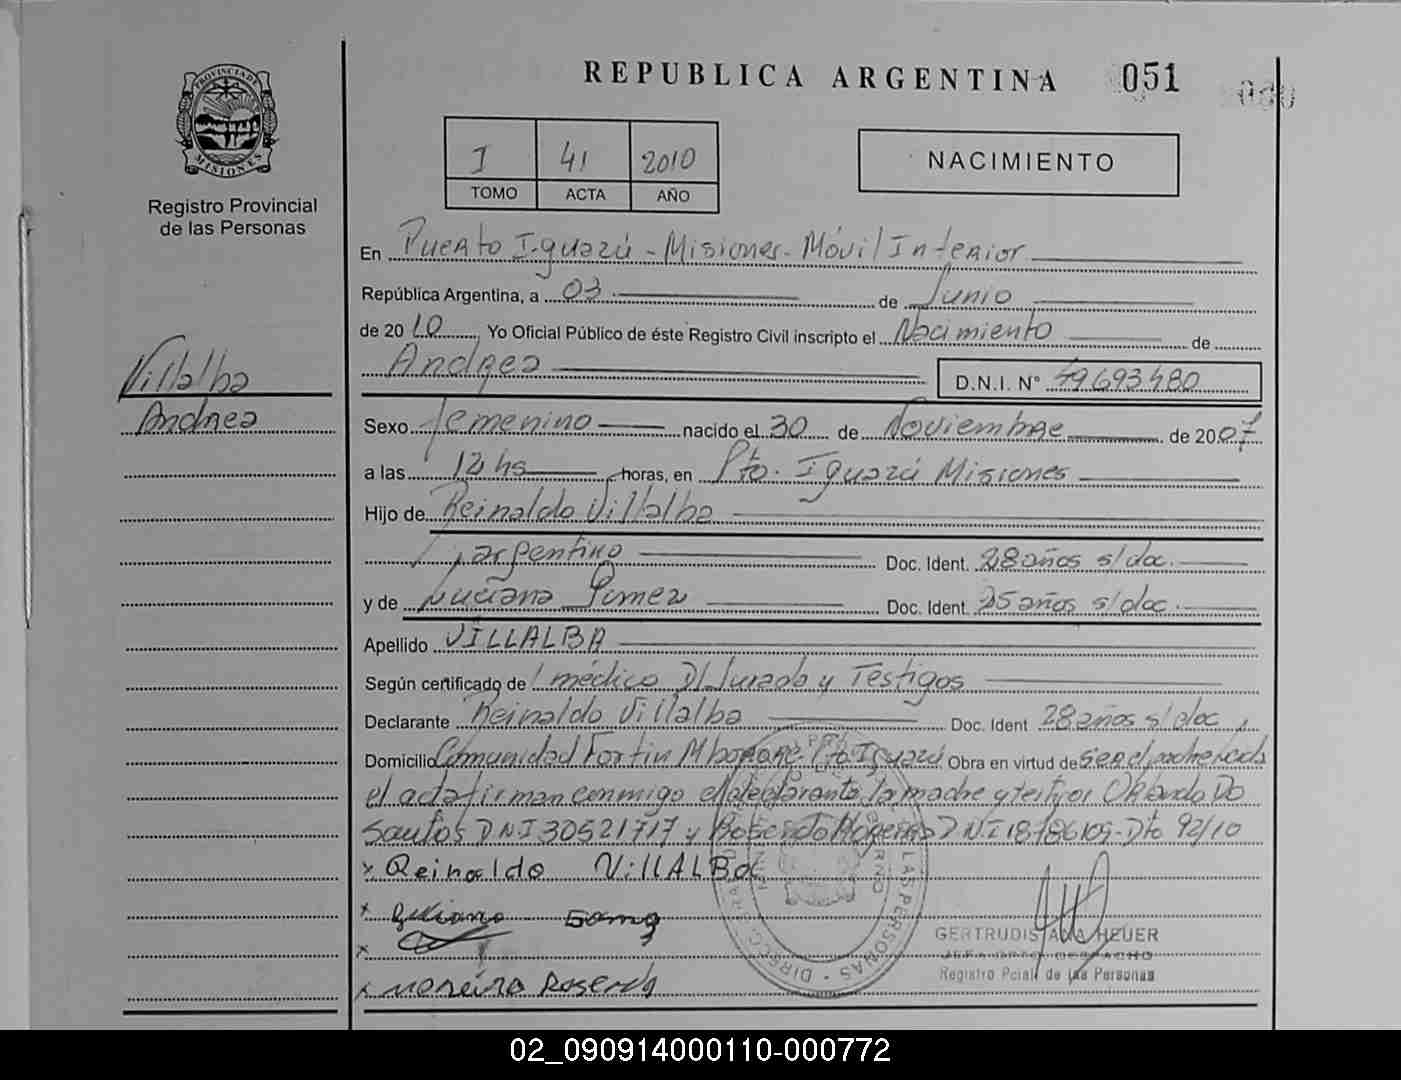 REPUBLICA ARGENTINA 051
PROVINCIA DE MISIONES
Registro Provincial
de las Personas
I 41 2010
TOMO ACTA AÑO
NACIMIENTO
En Puerto Iguazú - Misiones - Móvil Interior
República Argentina, a 03 de Junio
de 2010 Yo Oficial Público de éste Registro Civil inscripto el Nacimiento de
Andrea D.N.I. N° 49693480
Villalba
Andrea
Sexo femenino nacido el 30 de Noviembre de 2007
a las 12 hs horas, en Pto. Iguazú Misiones
Hijo de Reinaldo Villalba
argentino Doc. Ident. 28 años s/doc.
y de Luciana Gomez Doc. Ident. 25 años s/doc.
Apellido VILLALBA
Según certificado de médico D/Jurada y Testigos
Declarante Reinaldo Villalba Doc. Ident 28 años s/doc
Domicilio Comunidad Fortin Mbororé - Pto Iguazú Obra en virtud de ser el padre
el acta firman conmigo el declarante, la madre y Orlando Do
Santos DNI 30521717 y Rosendo DNI 18786109 - Dto 92/10
x Reinaldo VillALBA
x
x
x Rosendo
GERTRUDIS ANA HEUER
JEFA DPTO. DESPACHO
Registro Pcial. de las Personas
LAS PERSONAS
02_090914000110-000772